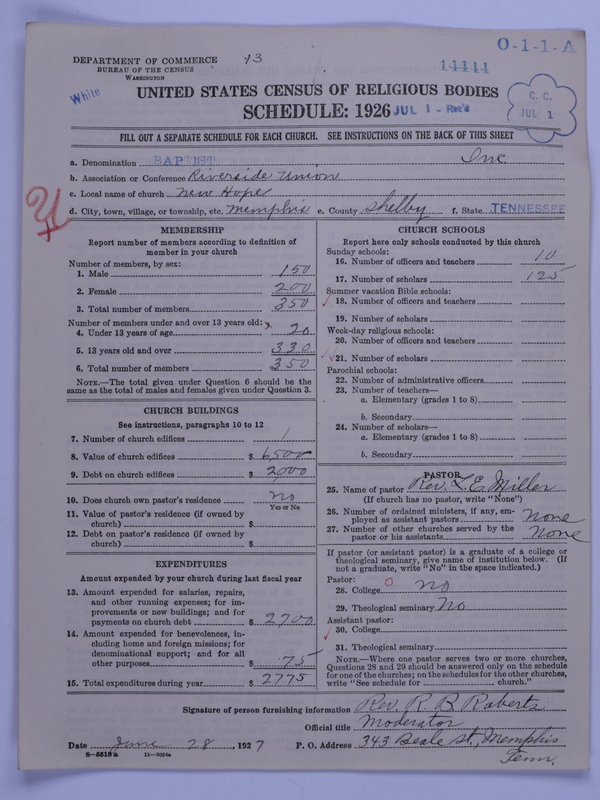 O-1-1-A
DEPARTMENT OF COMMERCE
BUREAU OF THE CENSUS
WASHINGTON
13
14444
White
UNITED STATES CENSUS OF RELIGIOUS BODIES
SCHEDULE: 1926
JUL 1 - Rec'd
C. C.
JUL 1
FILL OUT A SEPARATE SCHEDULE FOR EACH CHURCH. SEE INSTRUCTIONS ON THE BACK OF THIS SHEET
a. Denomination BAPTIST Inc
b. Association or Conference Riverside Union
c. Local name of church New Hope
d. City, town, village, or township, etc. Memphis e. County Shelby f. State TENNESSEE
MEMBERSHIP
Report number of members according to definition of
member in your church
Number of members, by sex:
1. Male 150
2. Female 200
3. Total number of members 350
Number of members under and over 13 years old:
4. Under 13 years of age 20
5. 13 years old and over 330
6. Total number of members 350
NOTE.—The total given under Question 6 should be the
same as the total of males and females given under Question 3.
CHURCH BUILDINGS
See instructions, paragraphs 10 to 12
7. Number of church edifices 1
8. Value of church edifices $ 6500
9. Debt on church edifices $ 2000
10. Does church own pastor's residence no
Yes or No
11. Value of pastor's residence (if owned by
church) $
12. Debt on pastor's residence (if owned by
church) $
EXPENDITURES
Amount expended by your church during last fiscal year
13. Amount expended for salaries, repairs,
and other running expenses; for im-
provements or new buildings; and for
payments on church debt $ 2700
14. Amount expended for benevolences, in-
cluding home and foreign missions; for
denominational support; and for all
other purposes $ 75
15. Total expenditures during year $ 2775
CHURCH SCHOOLS
Report here only schools conducted by this church
Sunday schools:
16. Number of officers and teachers 10
17. Number of scholars 125
Summer vacation Bible schools:
18. Number of officers and teachers
19. Number of scholars
Week-day religious schools:
20. Number of officers and teachers
21. Number of scholars
Parochial schools:
22. Number of administrative officers
23. Number of teachers—
a. Elementary (grades 1 to 8)
b. Secondary
24. Number of scholars—
a. Elementary (grades 1 to 8)
b. Secondary
PASTOR
25. Name of pastor Rev. L. E. Miller
(If church has no pastor, write "None")
26. Number of ordained ministers, if any, em-
ployed as assistant pastors none
27. Number of other churches served by the
pastor or his assistants none
If pastor (or assistant pastor) is a graduate of a college or
theological seminary, give name of institution below. (If
not a graduate, write "No" in the space indicated.)
Pastor:
28. College no
29. Theological seminary No
Assistant pastor:
30. College
31. Theological seminary
NOTE.—Where one pastor serves two or more churches,
Questions 28 and 29 should be answered only on the schedule
for one of the churches; on the schedules for the other churches,
write "See schedule for church."
Signature of person furnishing information Rev. R. B. Roberts
Official title Moderator
Date June 28, 1927 P. O. Address 343 Beale St., Memphis
Tenn.
8-5518a 11-9554a